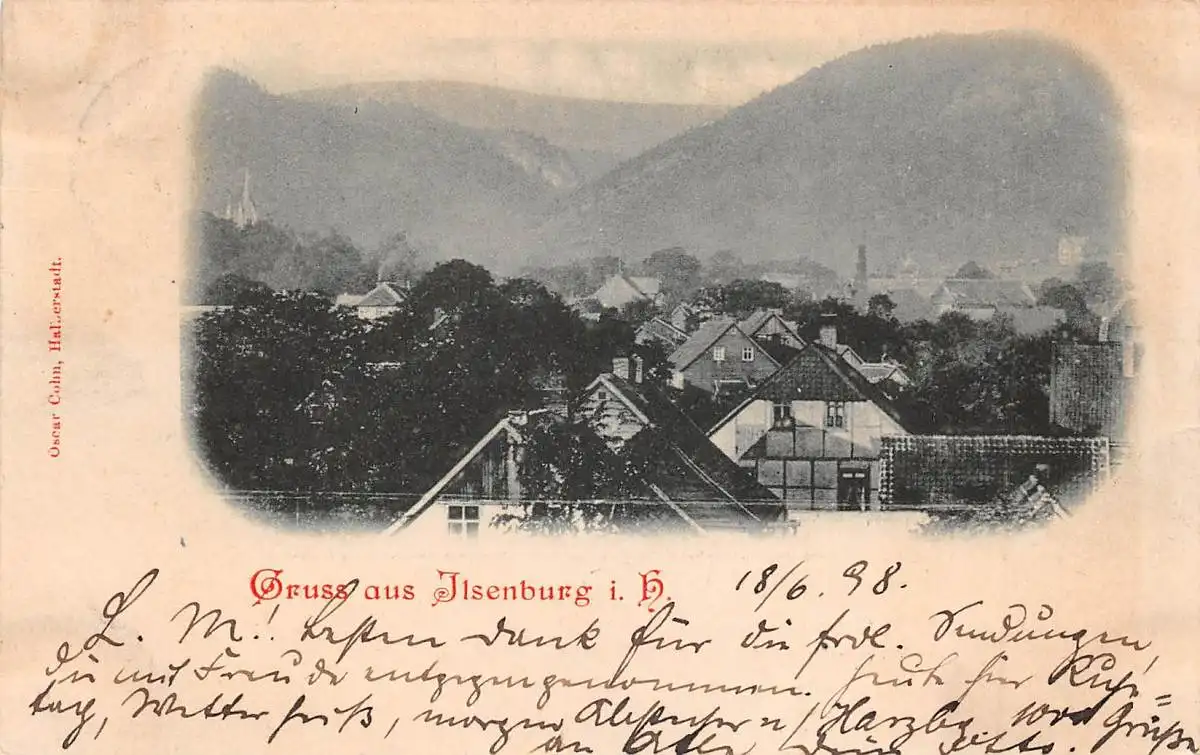 Oscar Cohn, Halberstadt.
Gruss aus Ilsenburg i. H.
18/6. 98.
L. M! Besten Dank für die frdl. Sendungen,
die mit Freude entgegengenommen. Heute hier Ruhe=
tag, Wetter heiß, morgen Abstecher n/ Harzbg. Grüße
an